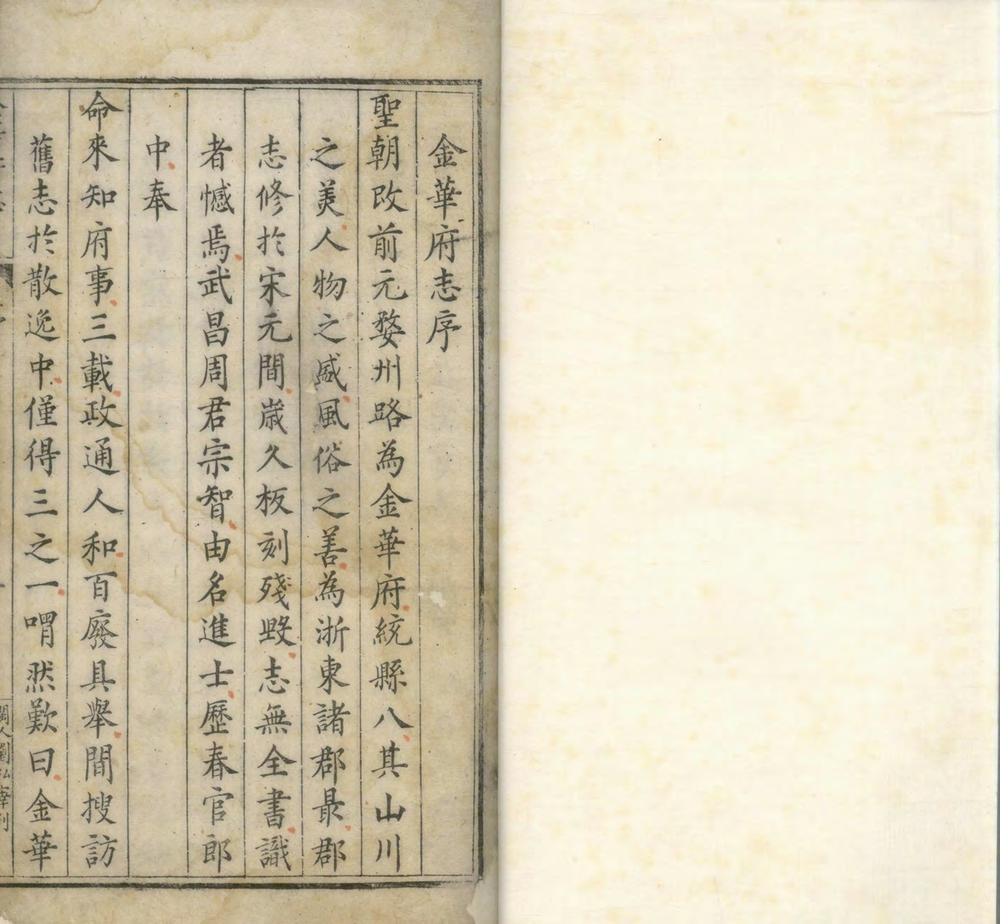 金華府志序
聖朝改前元婺州路為金華府統縣八其山川
之美人物之盛風俗之善為浙東諸郡最郡
志修於宋元間歳久板刻殘毀志無全書識
者憾焉武昌周君宗智由名進士歷春官郎
中奉
命來知府事三載政通人和百廢具舉間搜訪
舊志於散逸中僅得三之一喟然歎曰金華